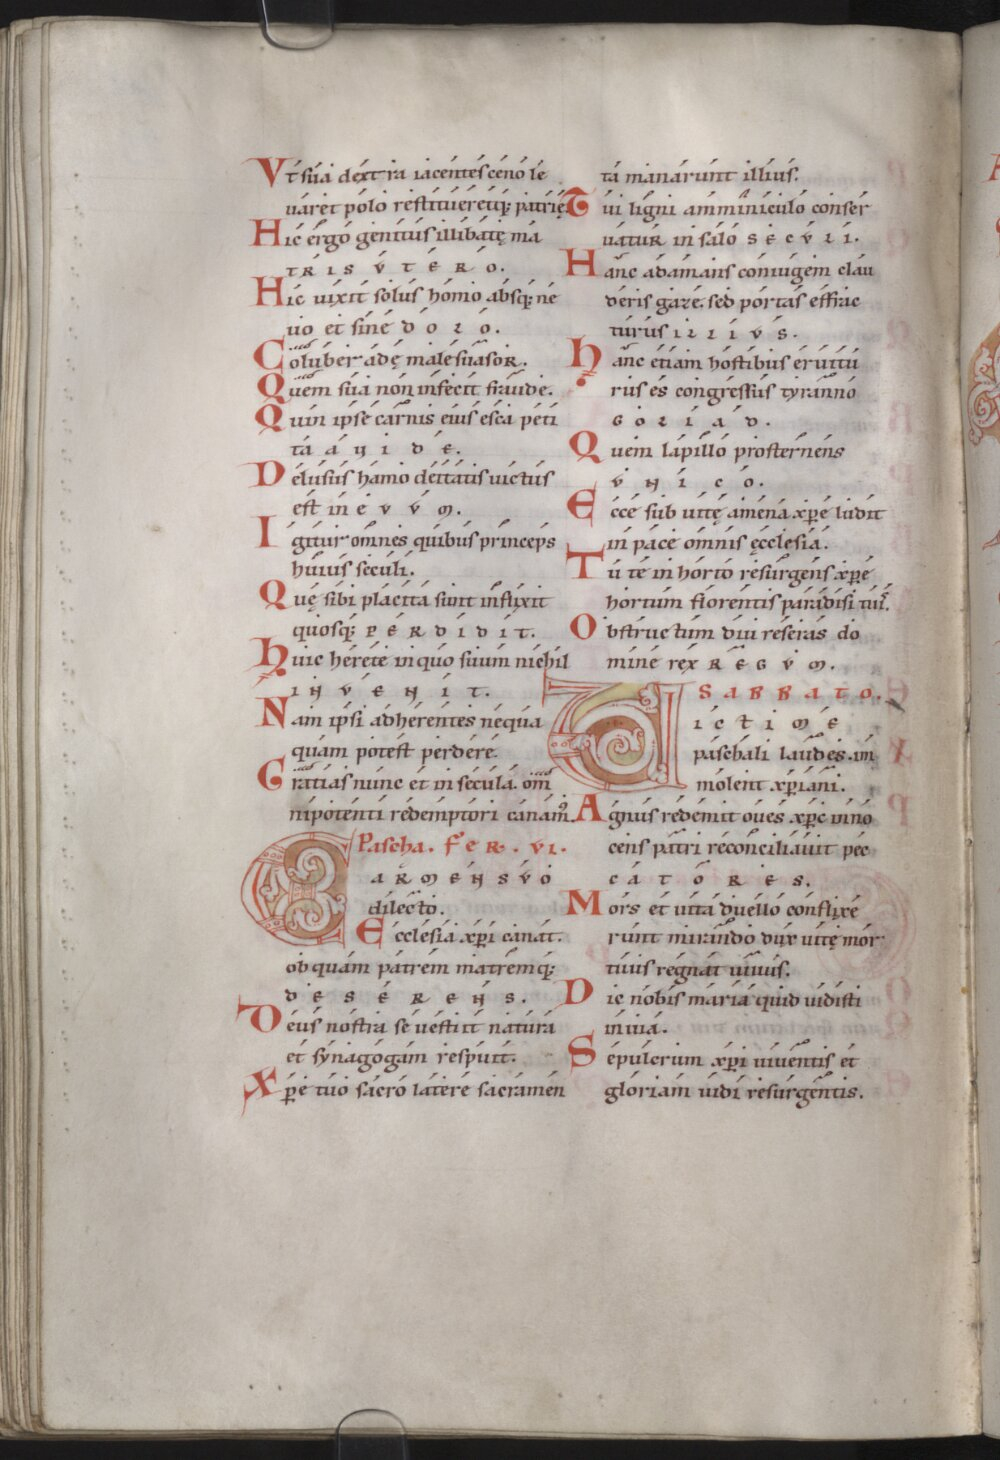 Vt sua dextra iacentes ceno le
uaret polo restitueretq; patrię.
Hic ergo genitus illibatę ma
TRIS VTERO.
Hic uixit solus homo absq; ne
uo et sine DOLO.
Coluber adę malesuasor.
Quem sua non infecit fraude.
Quin ipse carnis eius esca peti
ta AVIDE.
Delusus hamo deitatis uictus
est in EVVM.
Igitur omnes quibus princeps
huius seculi.
Quę sibi placita sunt inflixit
quosq; PERDIDIT.
Huic herete in quo suum nichil
INVENIT.
Nam ipsi adherentes nequa
quam potest perdere.
Gratias nunc et in secula. om̄
nipotenti redemptori canam9.
Pascha. FER. VI.
CARMEN SVO
dilecto.
Ecclesia xp̄i canat.
ob quam patrem matremq;
DESERENS.
Deus nostra se uestiit natura
et synagogam respuit.
Xp̄e tuo sacro latere sacramen
ta manarunt illius.
Tui ligni amminiculo conser
uatur in salo SECVLI.
Hanc adamans coniugem clau
deris gazę. sed portas effrac
turus ILLIVS.
Hanc etiam hostibus eruitu
rus es congressus tyranno
GOLIAD.
Quem lapillo prosternens
VNICO.
Ecce sub uitę amena xp̄e ludit
in pace omnis ęcclesia.
Tu te in horto resurgens xp̄e
hortum florentis paradisi tuis.
Obstructum diu reseras do
mine rex REGVM.
SABBATO.
VICTIME
paschali laudes. im
molent xp̄iani.
Agnus redemit oues xp̄c inno
cens patri reconciliauit pec
CATORES.
Mors et uita duello conflixe
runt mirando dux uitę mor
tuus regnat uiuus.
Dic nobis maria quid uidisti
in uia.
Sepulcrum xp̄i uiuentis et
gloriam uidi resurgentis.